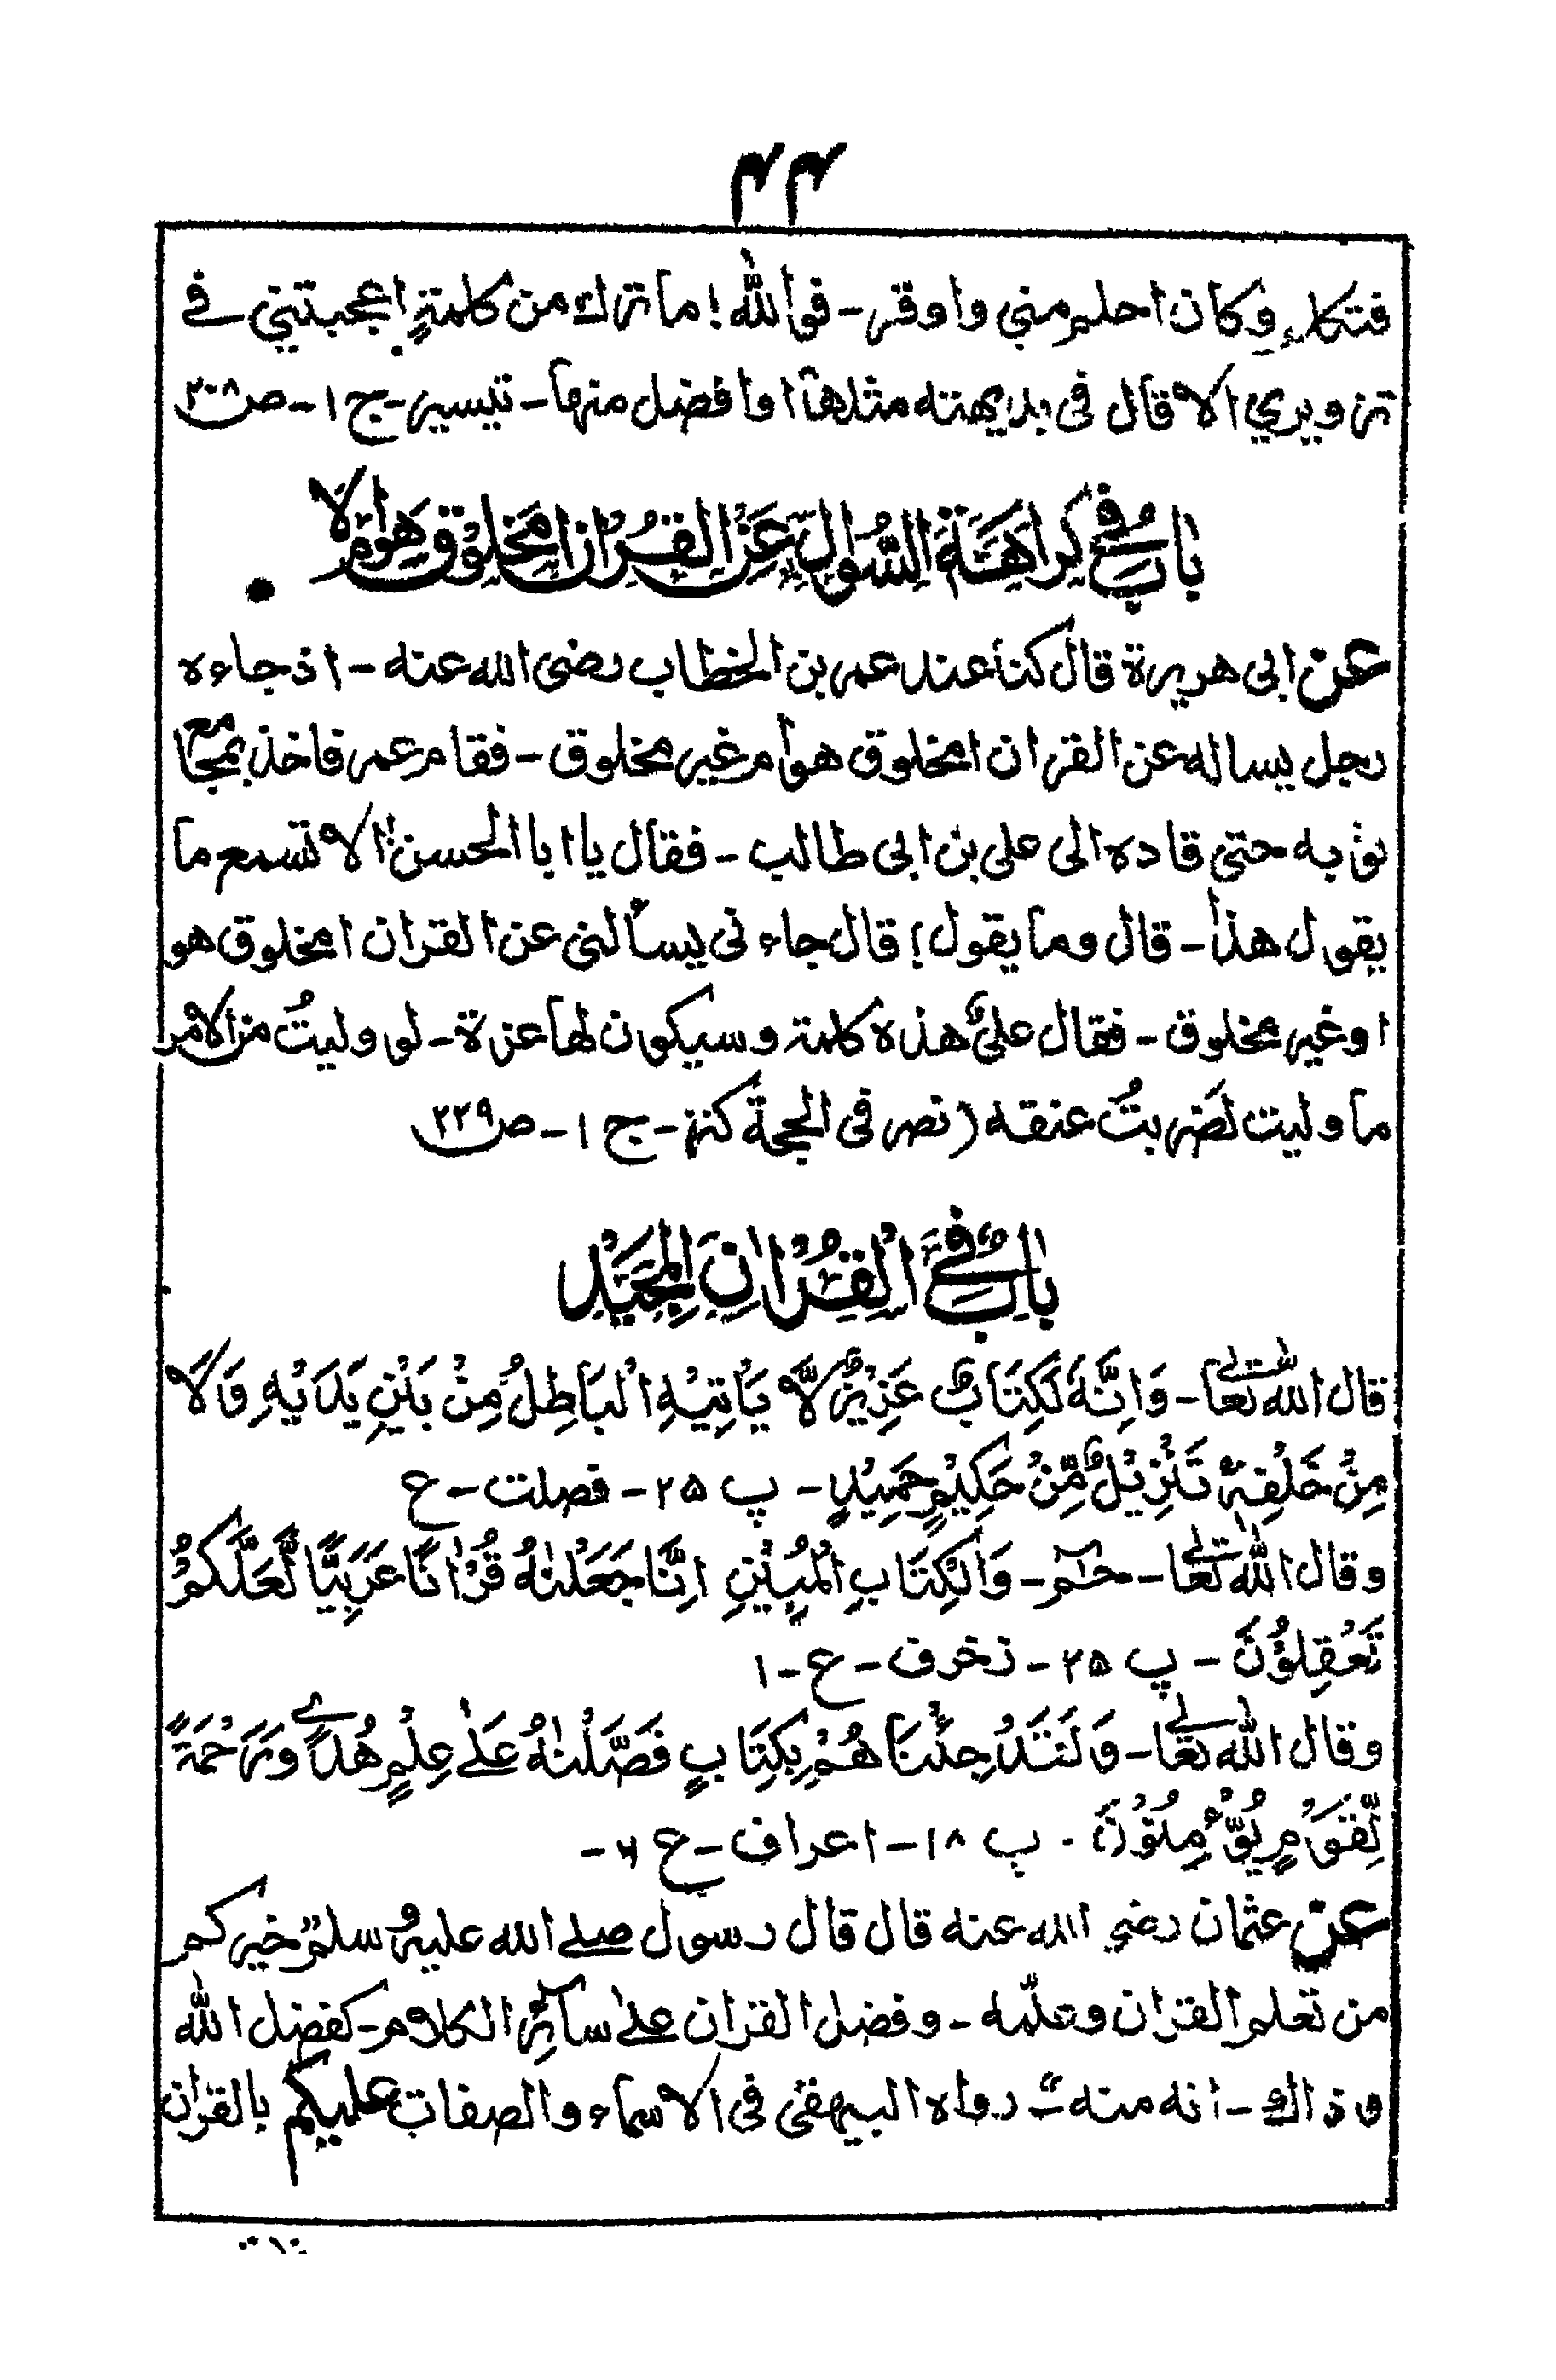 ۴۴
فتكلم وكان احلم مني واوقر - فوالله! ما ترك من كلمةٍ اعجبتني في
تزويري الا قال في بديهته مثلها او افضل منها - تيسير - ج ۱ - ص ۲۰۸
بابٌ في كراهَةِ السُّوالِ عَنِ القُرْاٰن اَمخلوق هَواَم لا
عن ابي هريرة قال كنا عند عمر بن الخطاب رضى الله عنه - اذ جاءه
رجل يساله عن القران امخلوق هوام غير مخلوق - فقام عمر فاخذ بمجامع
ثوبه حتى قاده الى على بن ابى طالب - فقال يا ابا الحسن! الا تسمع ما
يقول هذا - قال وما يقول! قال جاءنى يسألنى عن القران امخلوق هو
او غير مخلوق - فقال علىٌّ هذه كلمة وسيكون لها عزة - لو وليتُ من الامر
ما وليت لضربتُ عنقه (نصر فى الحجة كنز - ج ۱ - ص ۲۲۹
بابٌ فِي الْقُرْاٰنِ الْمَجِيْدِ
قال الله تعالى - وَاِنَّهٗ لَكِتَابٌ عَزِيْزٌ لَّا يَاْتِيْهِ الْبَاطِلُ مِنْ بَيْنِ يَدَيْهِ وَلَا
مِنْ خَلْفِهٖ تَنْزِيْلٌ مِّنْ حَكِيْمٍ حَمِيْدٍ - پ ۲۵ - فصلت - ع
وقال الله تعالى - حٰم - وَالْكِتَابِ الْمُبِيْنِ اِنَّا جَعَلْنٰهُ قُرْاٰنًا عَرَبِيًّا لَّعَلَّكُمْ
تَعْقِلُوْنَ - پ ۲۵ - زخرف - ع - ۱
وقال الله تعالى - وَلَقَدْ جِئْنَاهُمْ بِكِتَابٍ فَصَّلْنٰهُ عَلٰى عِلْمٍ هُدًى وَرَحْمَةً
لِّقَوْمٍ يُّؤْمِنُوْنَ - پ ۱۸ - اعراف - ع ۶ -
عن عثمان رضي الله عنه قال قال رسول صلى الله عليه وسلم خيركم
من تعلم القران وعلّمه - وفضل القران على سائر الكلام - كفضل الله
وذالك - انه منه - رواه البيهقى فى الاسماء والصفات عليكم بالقران